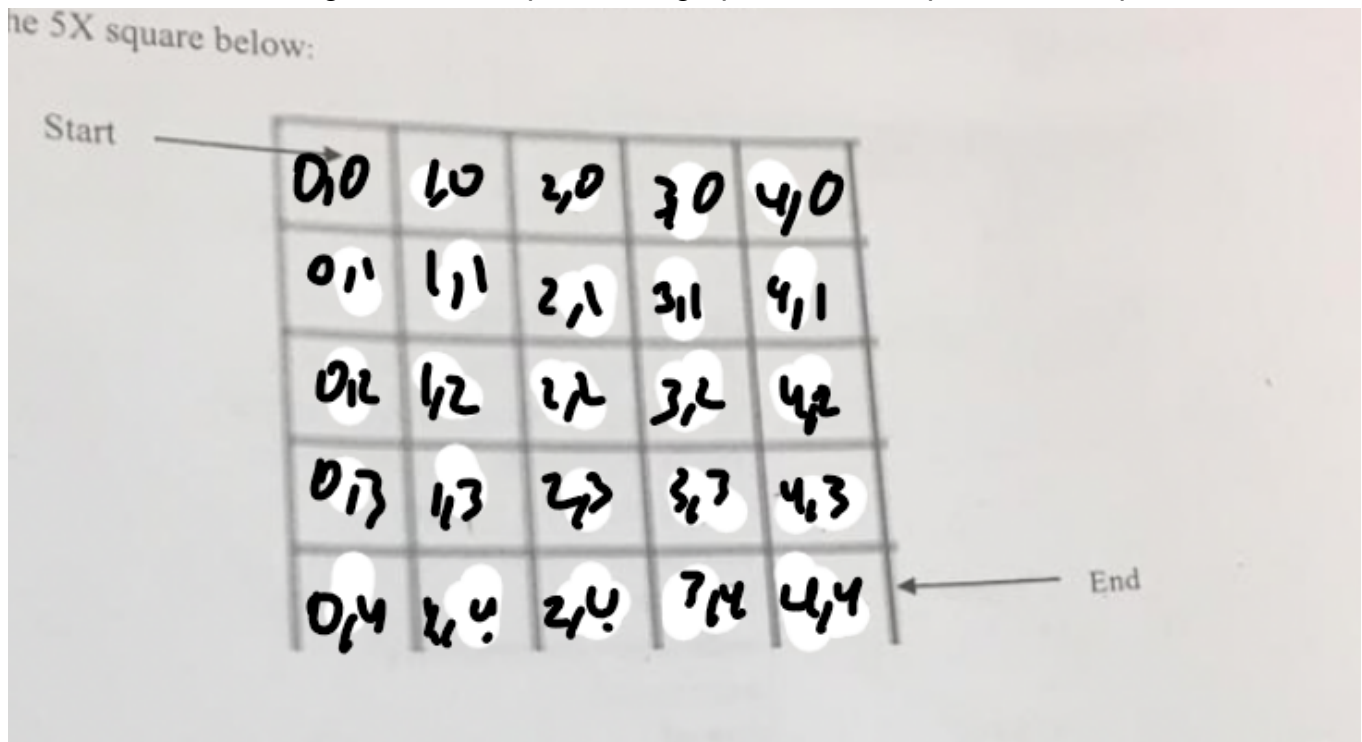 he 5X square below:
Start
0,0 1,0 2,0 3,0 4,0
0,1 1,1 2,1 3,1 4,1
0,2 1,2 2,2 3,2 4,2
0,3 1,3 2,3 3,3 4,3
0,4 2,4 3,4 4,4
End